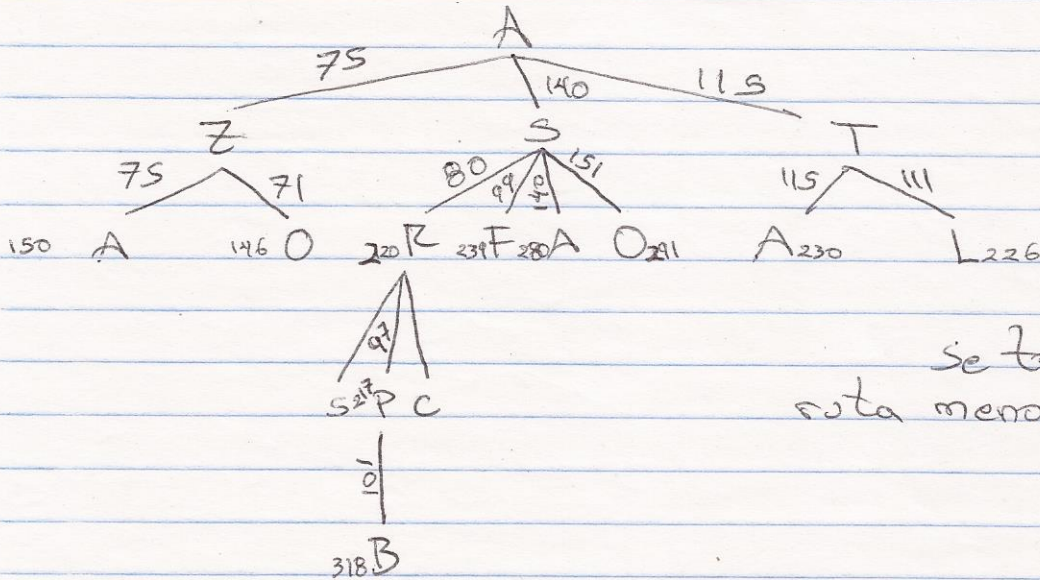 A
75 140 115
Z S T
75 71 80 99 151 115 111
150 A 146 O 220 R 239 F 280 A O 291 A 230 L 226
97
Se t
S 217 P C ruta meno
101
318 B